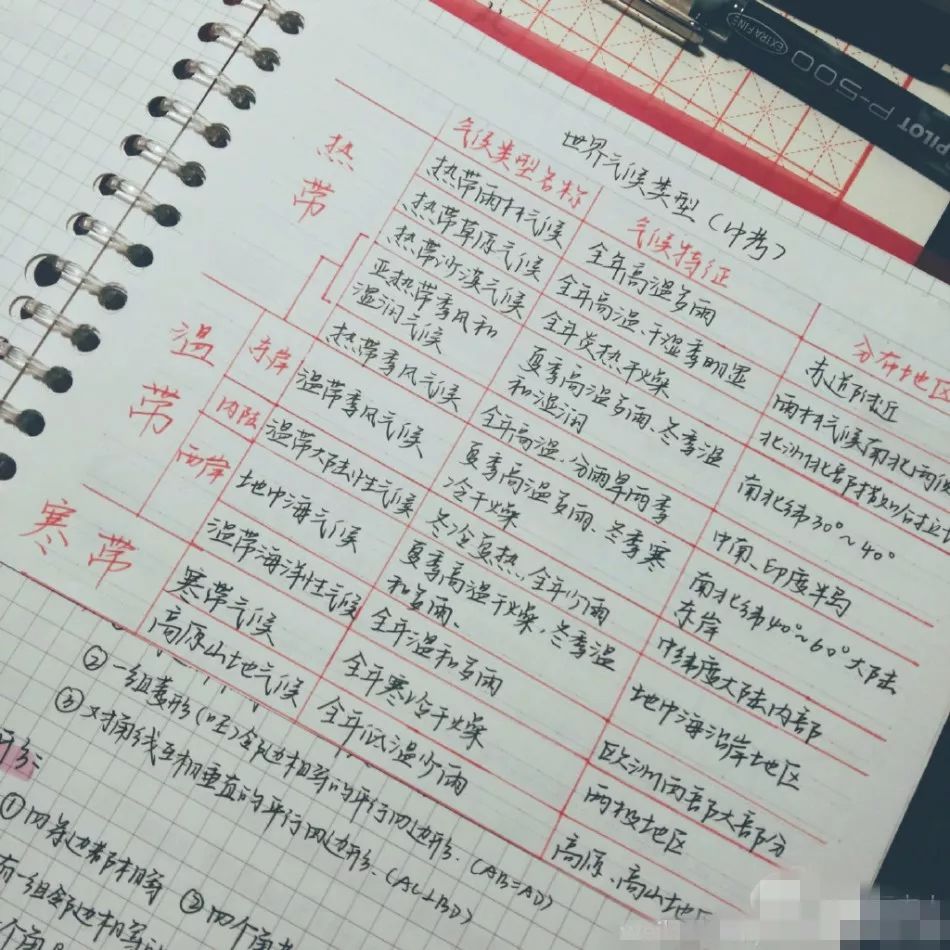 PILOT P-500 EXTRA FINE
世界气候类型(中考)
气候类型名称 气候特征 分布地区
热带
热带雨林气候 全年高温多雨 赤道附近
热带草原气候 全年高温、干湿季明显 雨林气候南北两侧
热带沙漠气候 全年炎热干燥 北洲北部
亚热带季风和
湿润气候
夏季高温多雨、冬季温
和湿润
南北纬30°~40°
热带季风气候 全年高温,分雨旱两季 中南、印度半岛
温带
东岸 温带季风气候
夏季高温多雨、冬季寒
冷干燥
南北纬40°~60°大陆
东岸
内陆 温带大陆性气候 冬冷夏热,全年少雨 中纬度大陆内部
西岸 地中海气候
夏季高温干燥,冬季温
和多雨、
地中海沿岸地区
温带海洋性气候 全年温和多雨 欧洲西部大部分
寒带
寒带气候 全年寒冷干燥 两极地区
高原山地气候 全年低温少雨 高原、高山地区
②一组菱形(口旺)邻边相等的平行四边形.(AB=AD)
③对角线互相垂直的平行四边形.(AC⊥BD)
形:
①四条边都相等 ②四个角
有一组邻边相等
个角